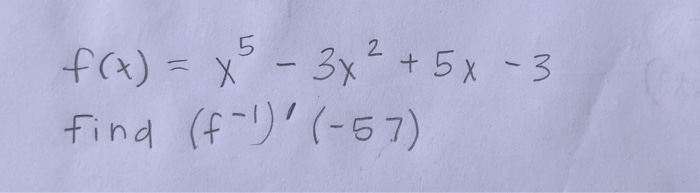 f(x) = x⁵ - 3x² + 5x - 3
Find (f⁻¹)' (-57)